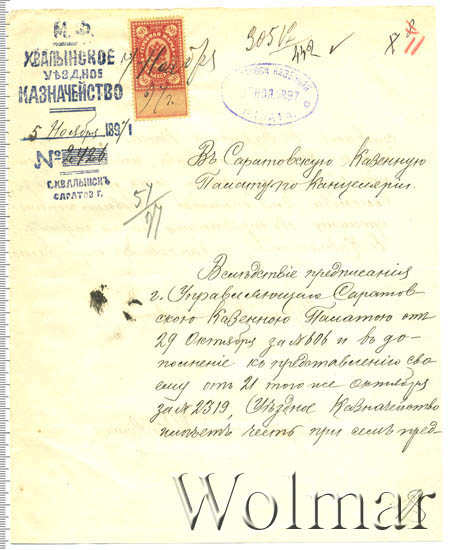 М. Ф.
ХВАЛЫНСКОЕ
УѢЗДНОЕ
КАЗНАЧЕЙСТВО
5 Ноября 1897
№ 2426
Г. ХВАЛЫНСКЪ
САРАТОВ Г.
7 Ноября
305
442
11
НОЯ 1897
57
Въ Саратовскую Казенную
Палату по Канцелярiи.
Вслѣдствiе предписанiя
г. Управляющаго Саратов-
скою Казенною Палатою отъ
29 Октября за № 606 и въ до-
полненiе къ представленiю сво-
ему отъ 21 того же октября
за № 2319, Уѣздное Казначейство
имѣетъ честь при семъ пред-
Wolmar